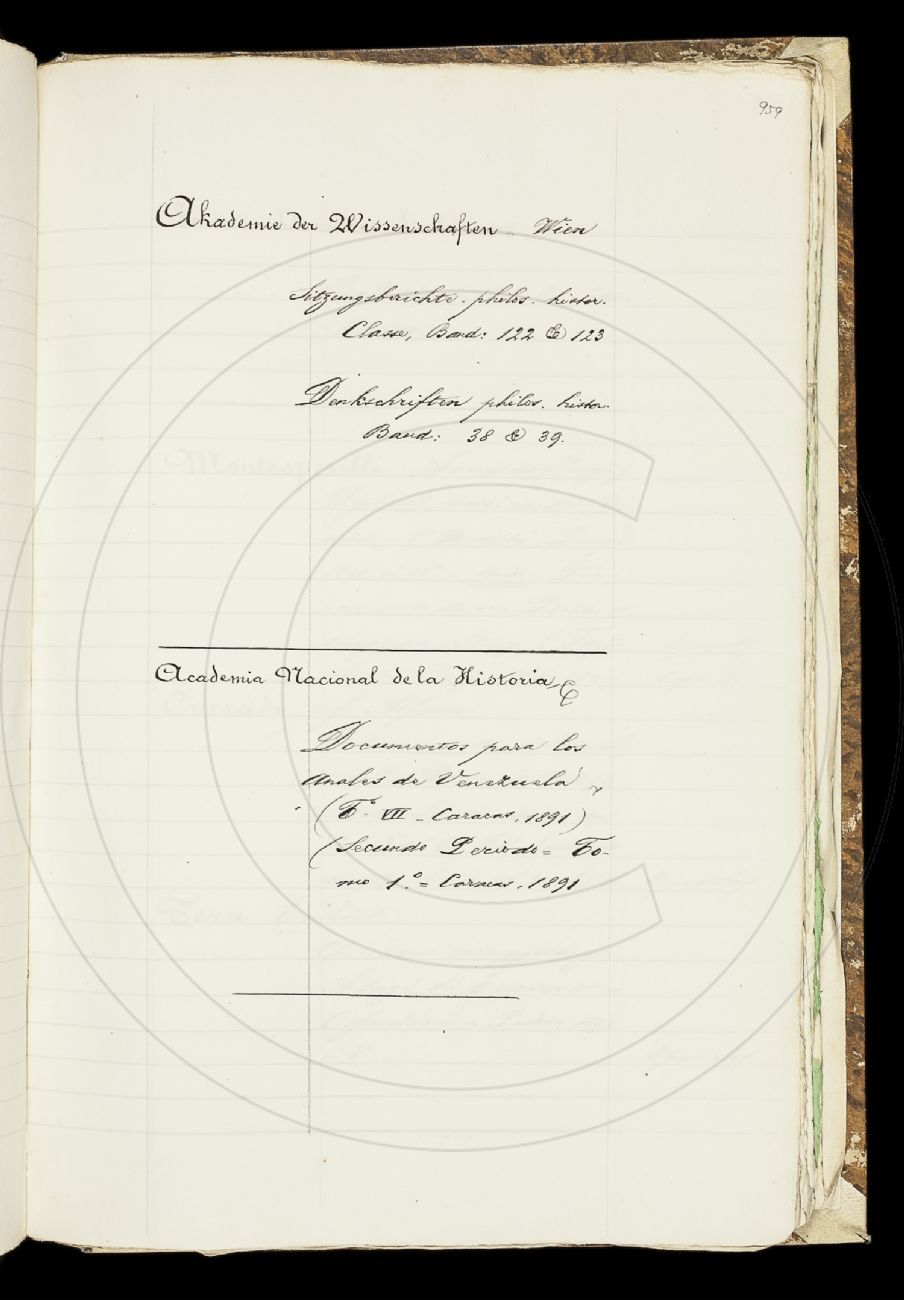 959
Akademie der Wissenschaften - Wien
Sitzungsberichte. philos. histor.
Classe, Band: 122 & 123
Denkschriften philos. histor.
Band: 38 & 39.
Academia Nacional de la Historia,
Documentos para los
Anales de Venezuela
(T.º VII - Caracas. 1891)
(Secundo Periodo = To-
mo 1.º = Caracas. 1891